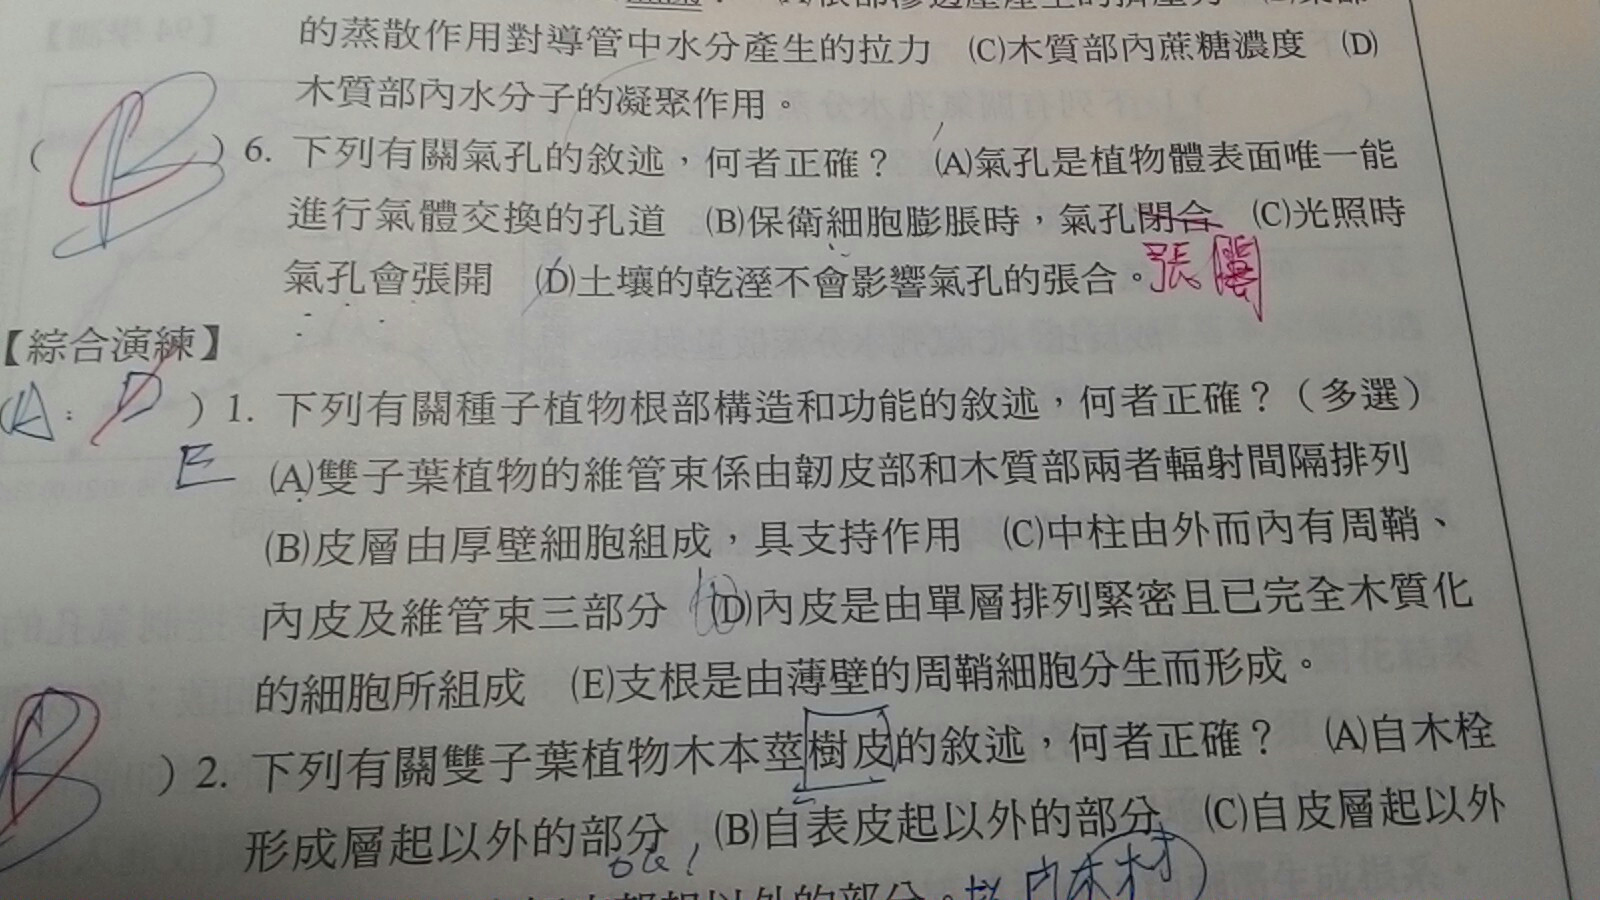 的蒸散作用對導管中水分產生的拉力 (C)木質部內蔗糖濃度 (D)
木質部內水分子的凝聚作用。
( B ) 6. 下列有關氣孔的敘述，何者正確？ (A)氣孔是植物體表面唯一能
進行氣體交換的孔道 (B)保衛細胞膨脹時，氣孔閉合 (C)光照時
張開
氣孔會張開 (D)土壤的乾溼不會影響氣孔的張合。
【綜合演練】
(A . D ) 1. 下列有關種子植物根部構造和功能的敘述，何者正確？（多選）
E (A)雙子葉植物的維管束係由韌皮部和木質部兩者輻射間隔排列
(B)皮層由厚壁細胞組成，具支持作用 (C)中柱由外而內有周鞘、
內皮及維管束三部分 (D)內皮是由單層排列緊密且已完全木質化
的細胞所組成 (E)支根是由薄壁的周鞘細胞分生而形成。
) 2. 下列有關雙子葉植物木本莖樹皮的敘述，何者正確？ (A)自木栓
形成層起以外的部分 (B)自表皮起以外的部分 (C)自皮層起以外
以外的部分。